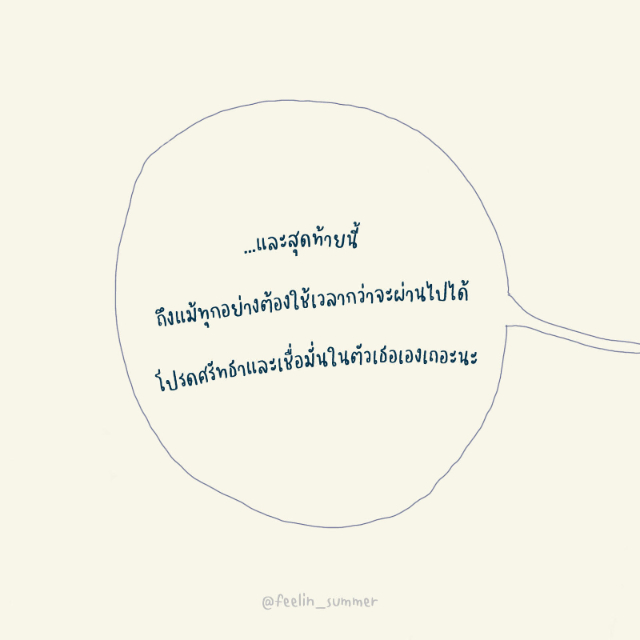 ...และสุดท้ายนี้
ถึงแม้ทุกอย่างต้องใช้เวลากว่าจะผ่านไปได้
โปรดศรัทธาและเชื่อมั่นในตัวเธอเองเถอะนะ
@feelin_summer